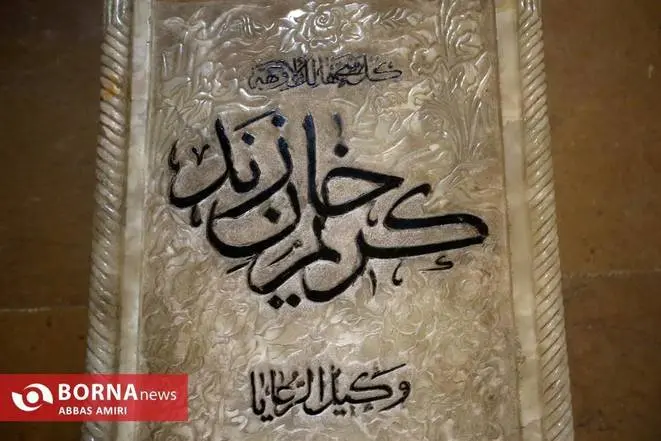 کل شیء هالک الا وجهه
کریم خان زند
وکیل الرعایا
BORNA news
ABBAS AMIRI